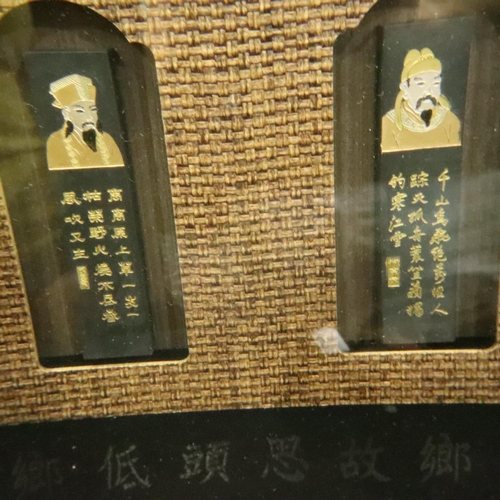 离离原上草一岁一
枯榮野火燒不尽春
風吹又生
千山鳥飛絕萬徑人
踪灭孤舟蓑笠翁獨
釣寒江雪
鄉低頭思故鄉